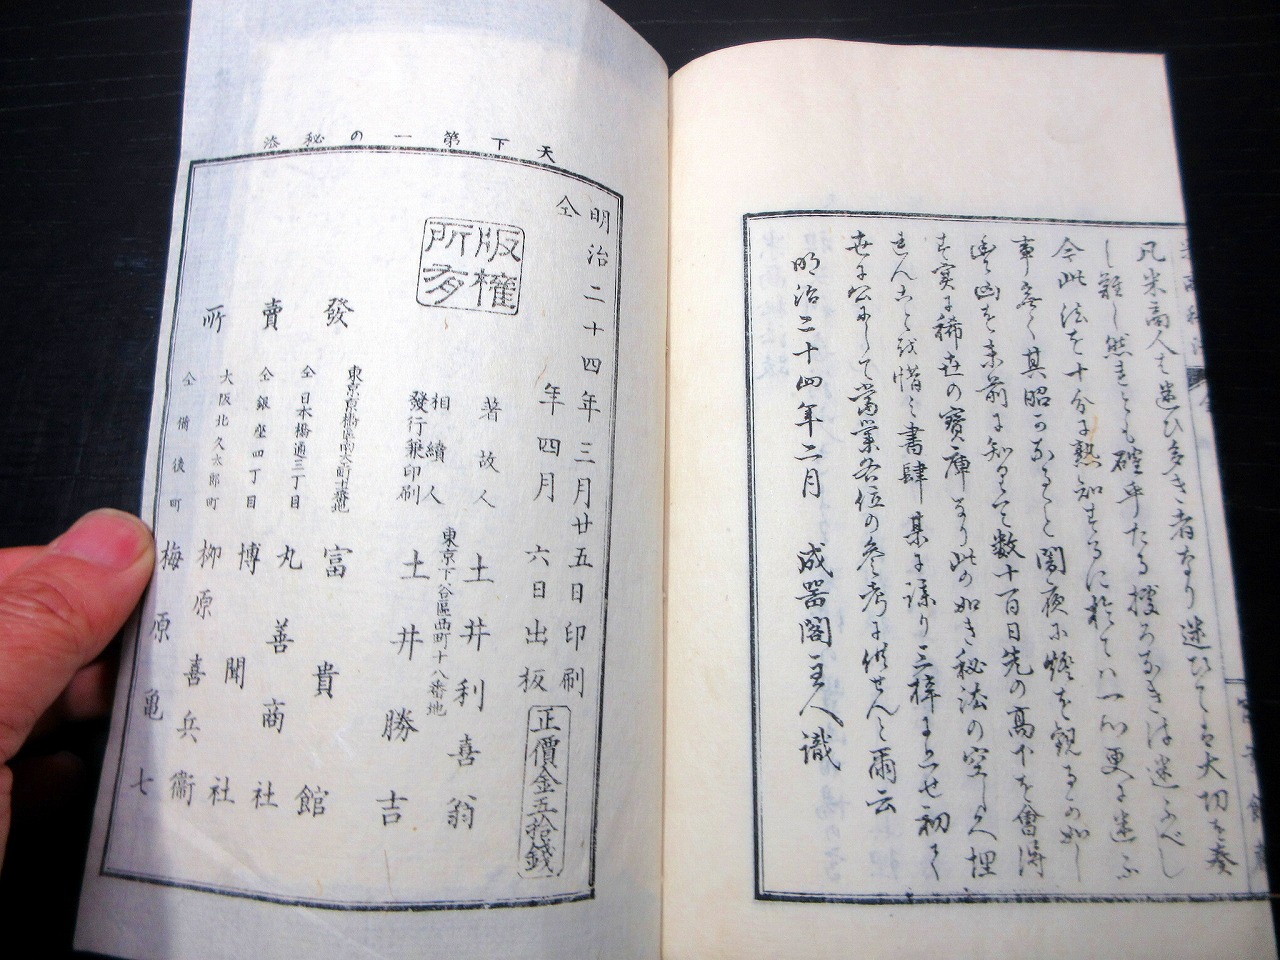 凡米商人は迷ひ多き者なり迷ひては大切を奏
し難し然れども確乎たる據ろなきは迷ふべし
今此法を十分に熟知するに於ては一心更に迷ふ
事なく其昭かなること闇夜に燈を観るが如し
豊凶を未前に知りて数十百日先の高下を會得
す実に稀世の寶庫なり此の如き秘法の空しく埋
れんことを惜み書肆某に謀り上梓せ初て
世に公にして當業各位の參考に供せんと爾云
明治二十四年二月 成器閣主人識
天下第一の秘法
明治二十四年三月廿五日印刷
仝 年四月 六日出板
正價金五拾錢
版權所有
著故人 土井利喜翁
東京下谷區西町十八番地
相續人
發行兼印刷 土井勝吉
發賣所
東京京橋區南大町十番地 富貴館
仝日本橋通三丁目 丸善商社
仝銀座四丁目 博聞社
大阪北久太郎町 柳原喜兵衞
仝備後町 梅原亀七